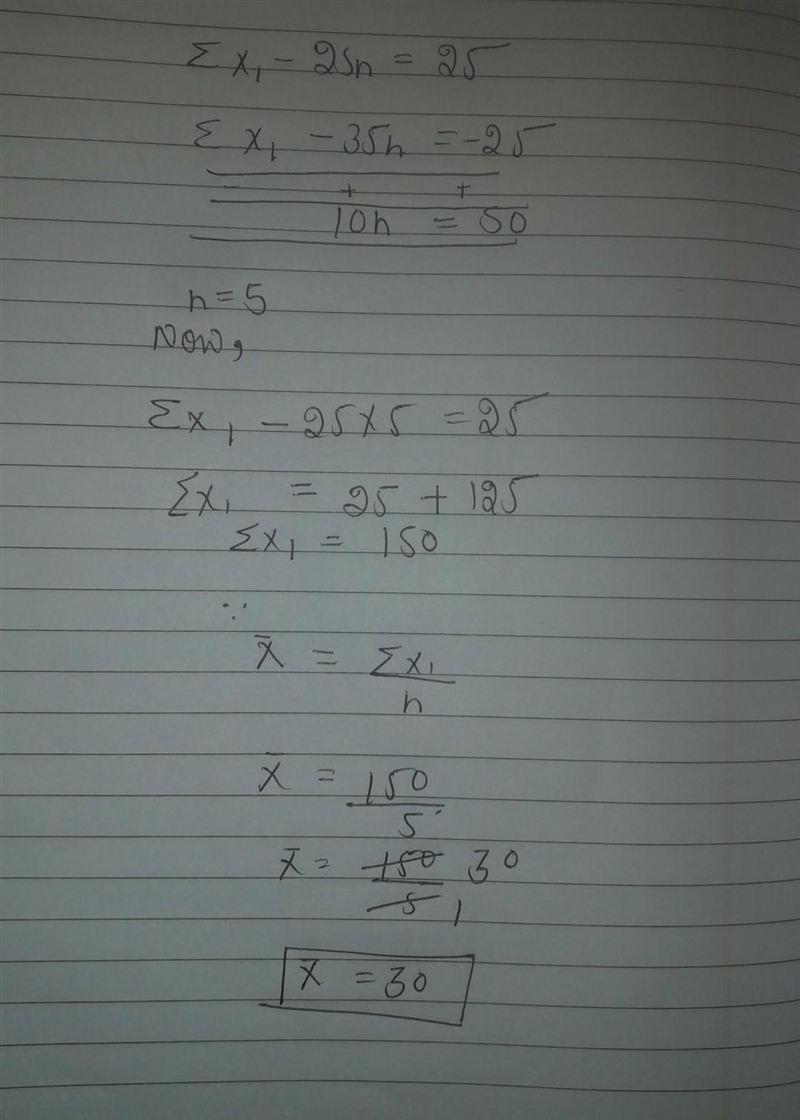 Σx₁ - 25n = 25
Σx₁ - 35n = -25
- + +
10n = 50
n = 5
Now,
Σx₁ - 25×5 = 25
Σx₁ = 25 + 125
Σx₁ = 150
∵
x̄ = Σx₁/n
x̄ = 150/5
x̄ = 150/5 30 1
x̄ = 30